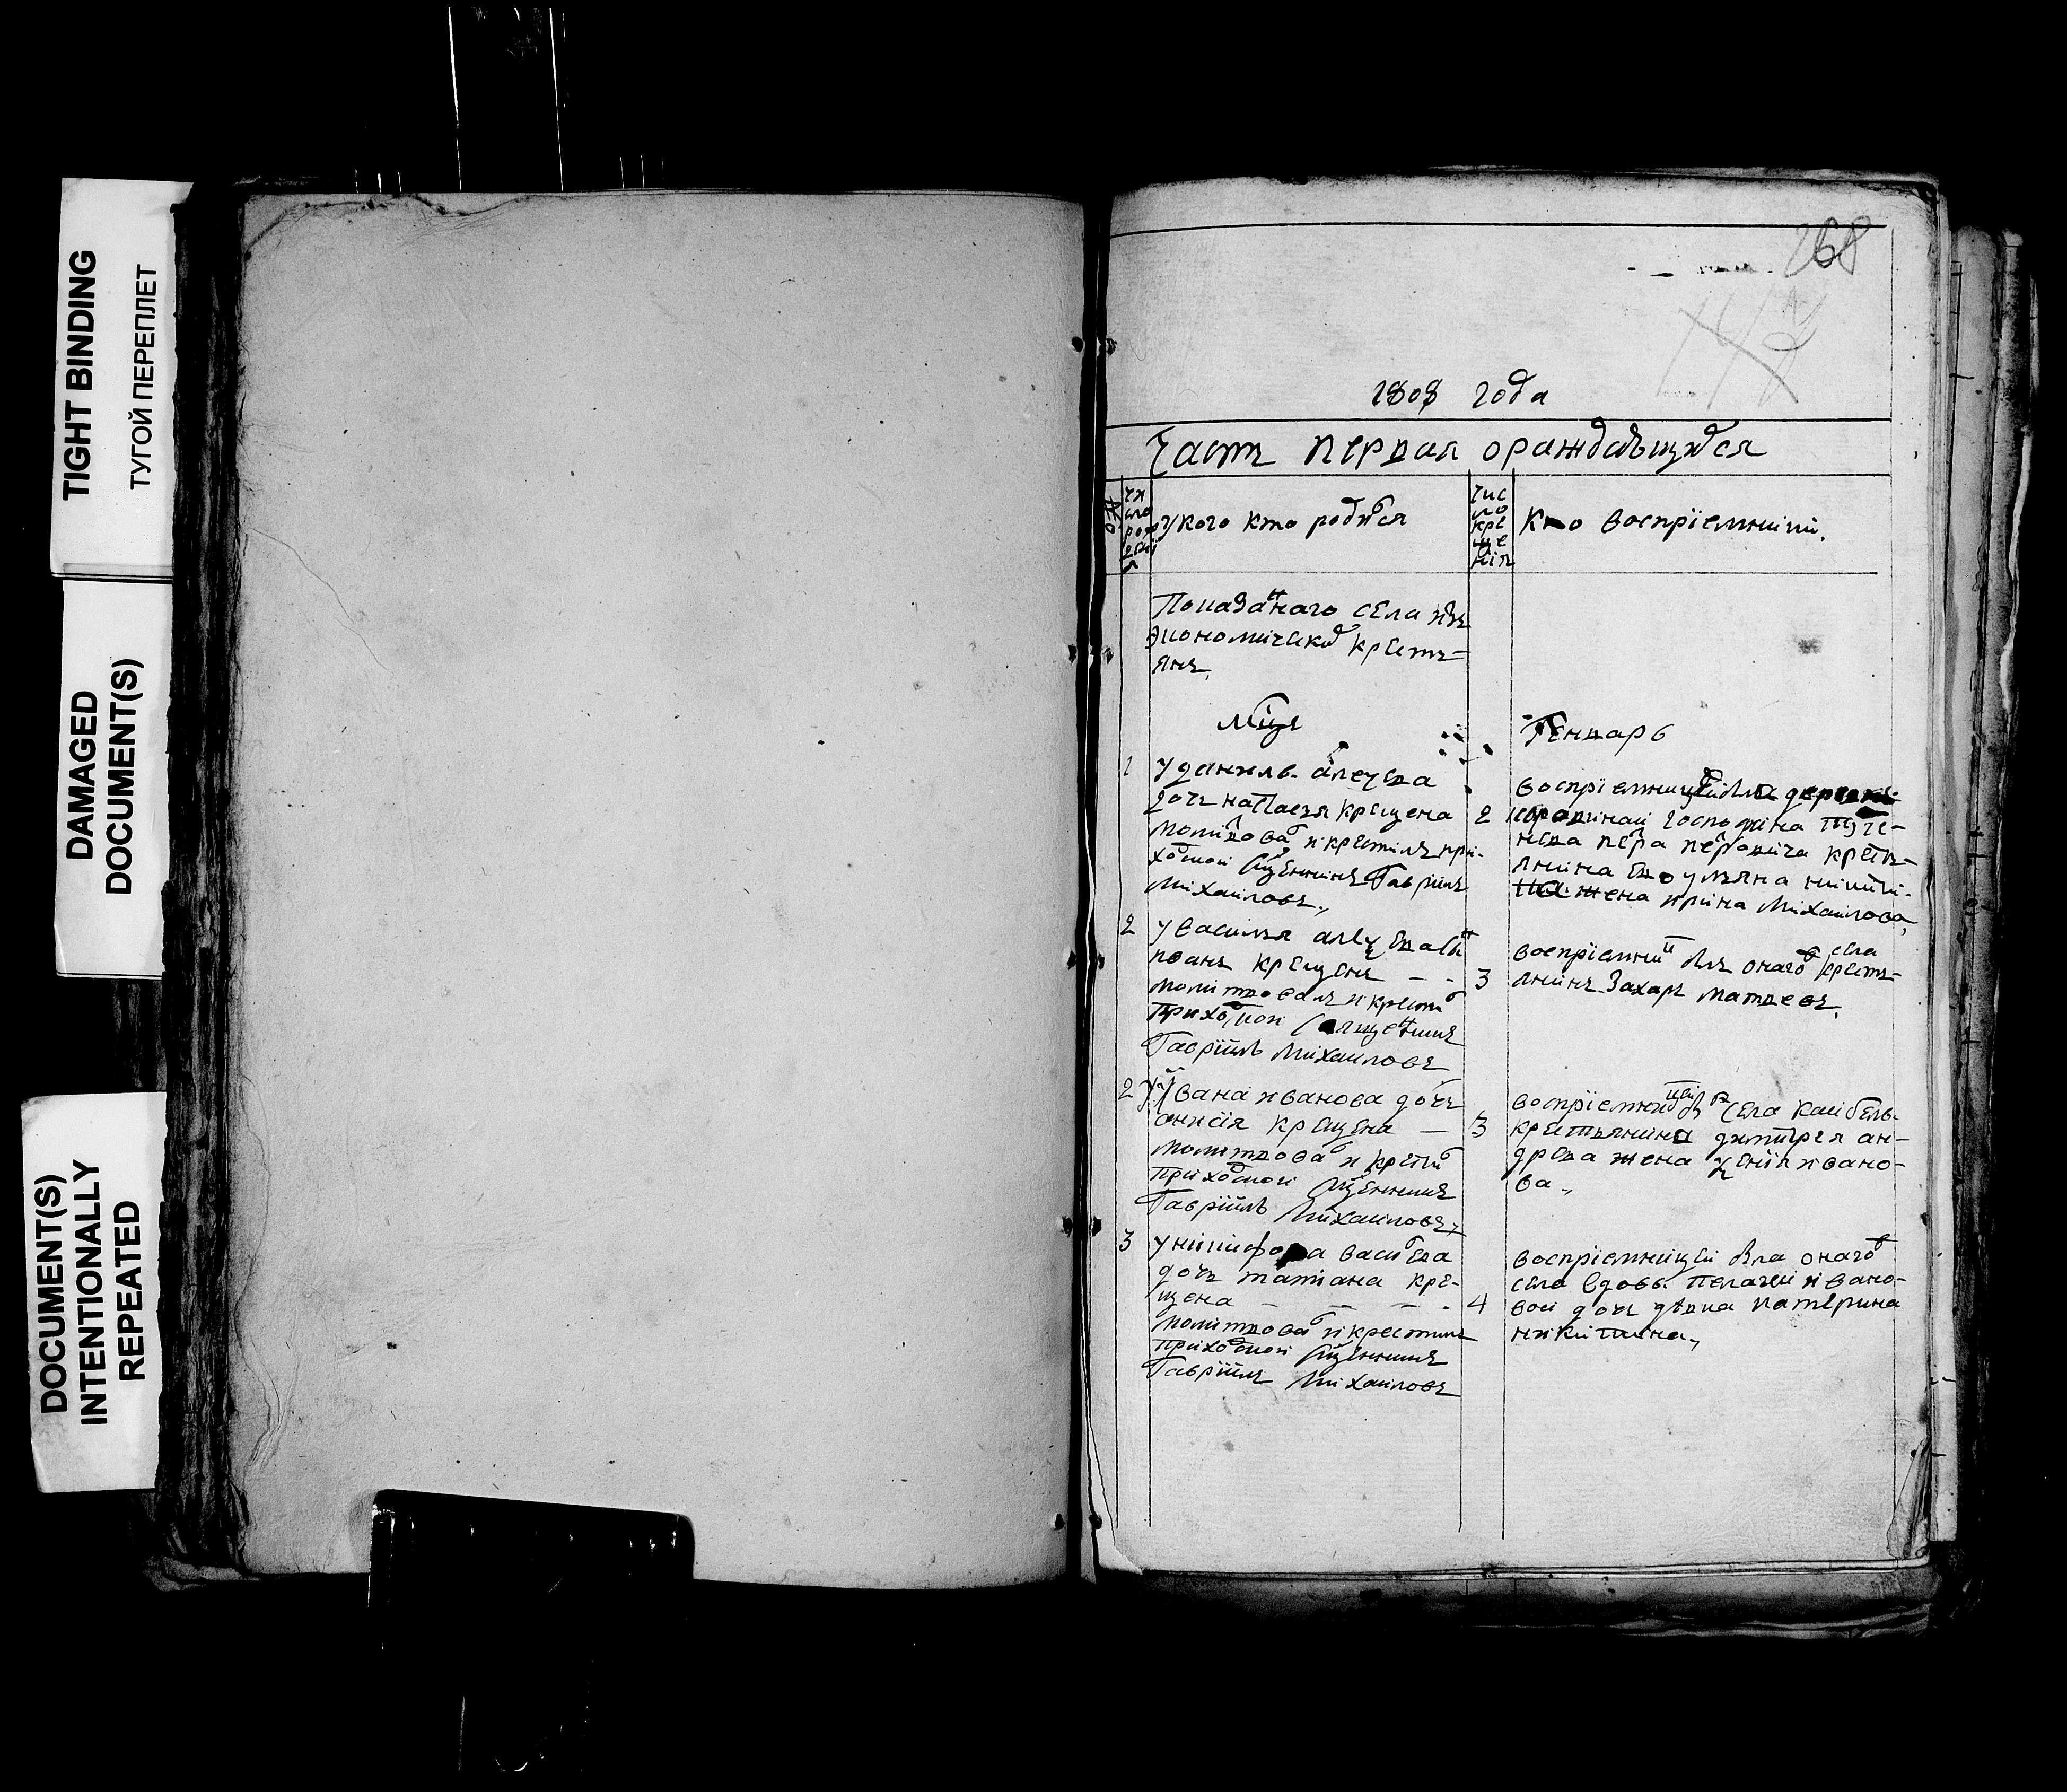 TIGHT BINDING
ТУГОЙ ПЕРЕПЛЕТ
DAMAGED
DOCUMENT(S)
DOCUMENT(S)
INTENTIONALLY
REPEATED
268
1808 года
Часть первая о раждающихся
№
число рождения
у кого кто родился
число крещенія
Кто воспріемники.
Показаннаго села изъ
экономическихъ кресть-
янъ,
Мцъ
Генварь
1
у данилы алеѯѣева
дочь настасья крещена
молитвова и крестилъ при-
ходской Сщенникъ Гавріилъ
Михаиловъ.,
2
воспріемницей была
господина Турге-
нева петра петровича кресть-
янина ульяна никити-
на жена ирина Михаилова,
2
у василья алеѯѣева сынъ
иванъ крещенъ — —
молитвовалъ и крестил
приходскои Священникъ
Гавріилъ Михаиловъ
3
воспріемник былъ онаго села кресть-
янинъ Захаръ матвеевъ,
2
у Ивана иванова дочь
анисія крещена —
молитвовал и крестил
приходскои Сщенникъ
Гавріилъ Михаиловъ,
3
воспріемницей была села каибелъ
крестьянина димитрея ан-
дреева жена ѯенія ивано-
ва.,
3
у никифора васильева
дочь татиана кре-
щена — — — .
молитвовал и крестилъ
приходскои Сщенникъ
Гавріилъ Михаиловъ
4
воспріемницей была онаго
села вдовы пелагеи ивано-
вои дочь дѣвка катерина
никитина,